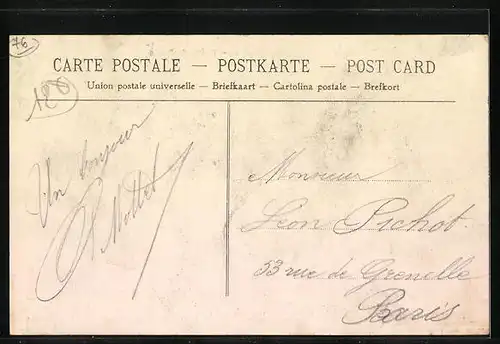 76
CARTE POSTALE — POSTKARTE — POST CARD
Union postale universelle — Briefkaart — Cartolina postale — Brefkort
Un bonjour
Mottet
Monsieur
Léon Pichot
53 rue de Grenelle
Paris